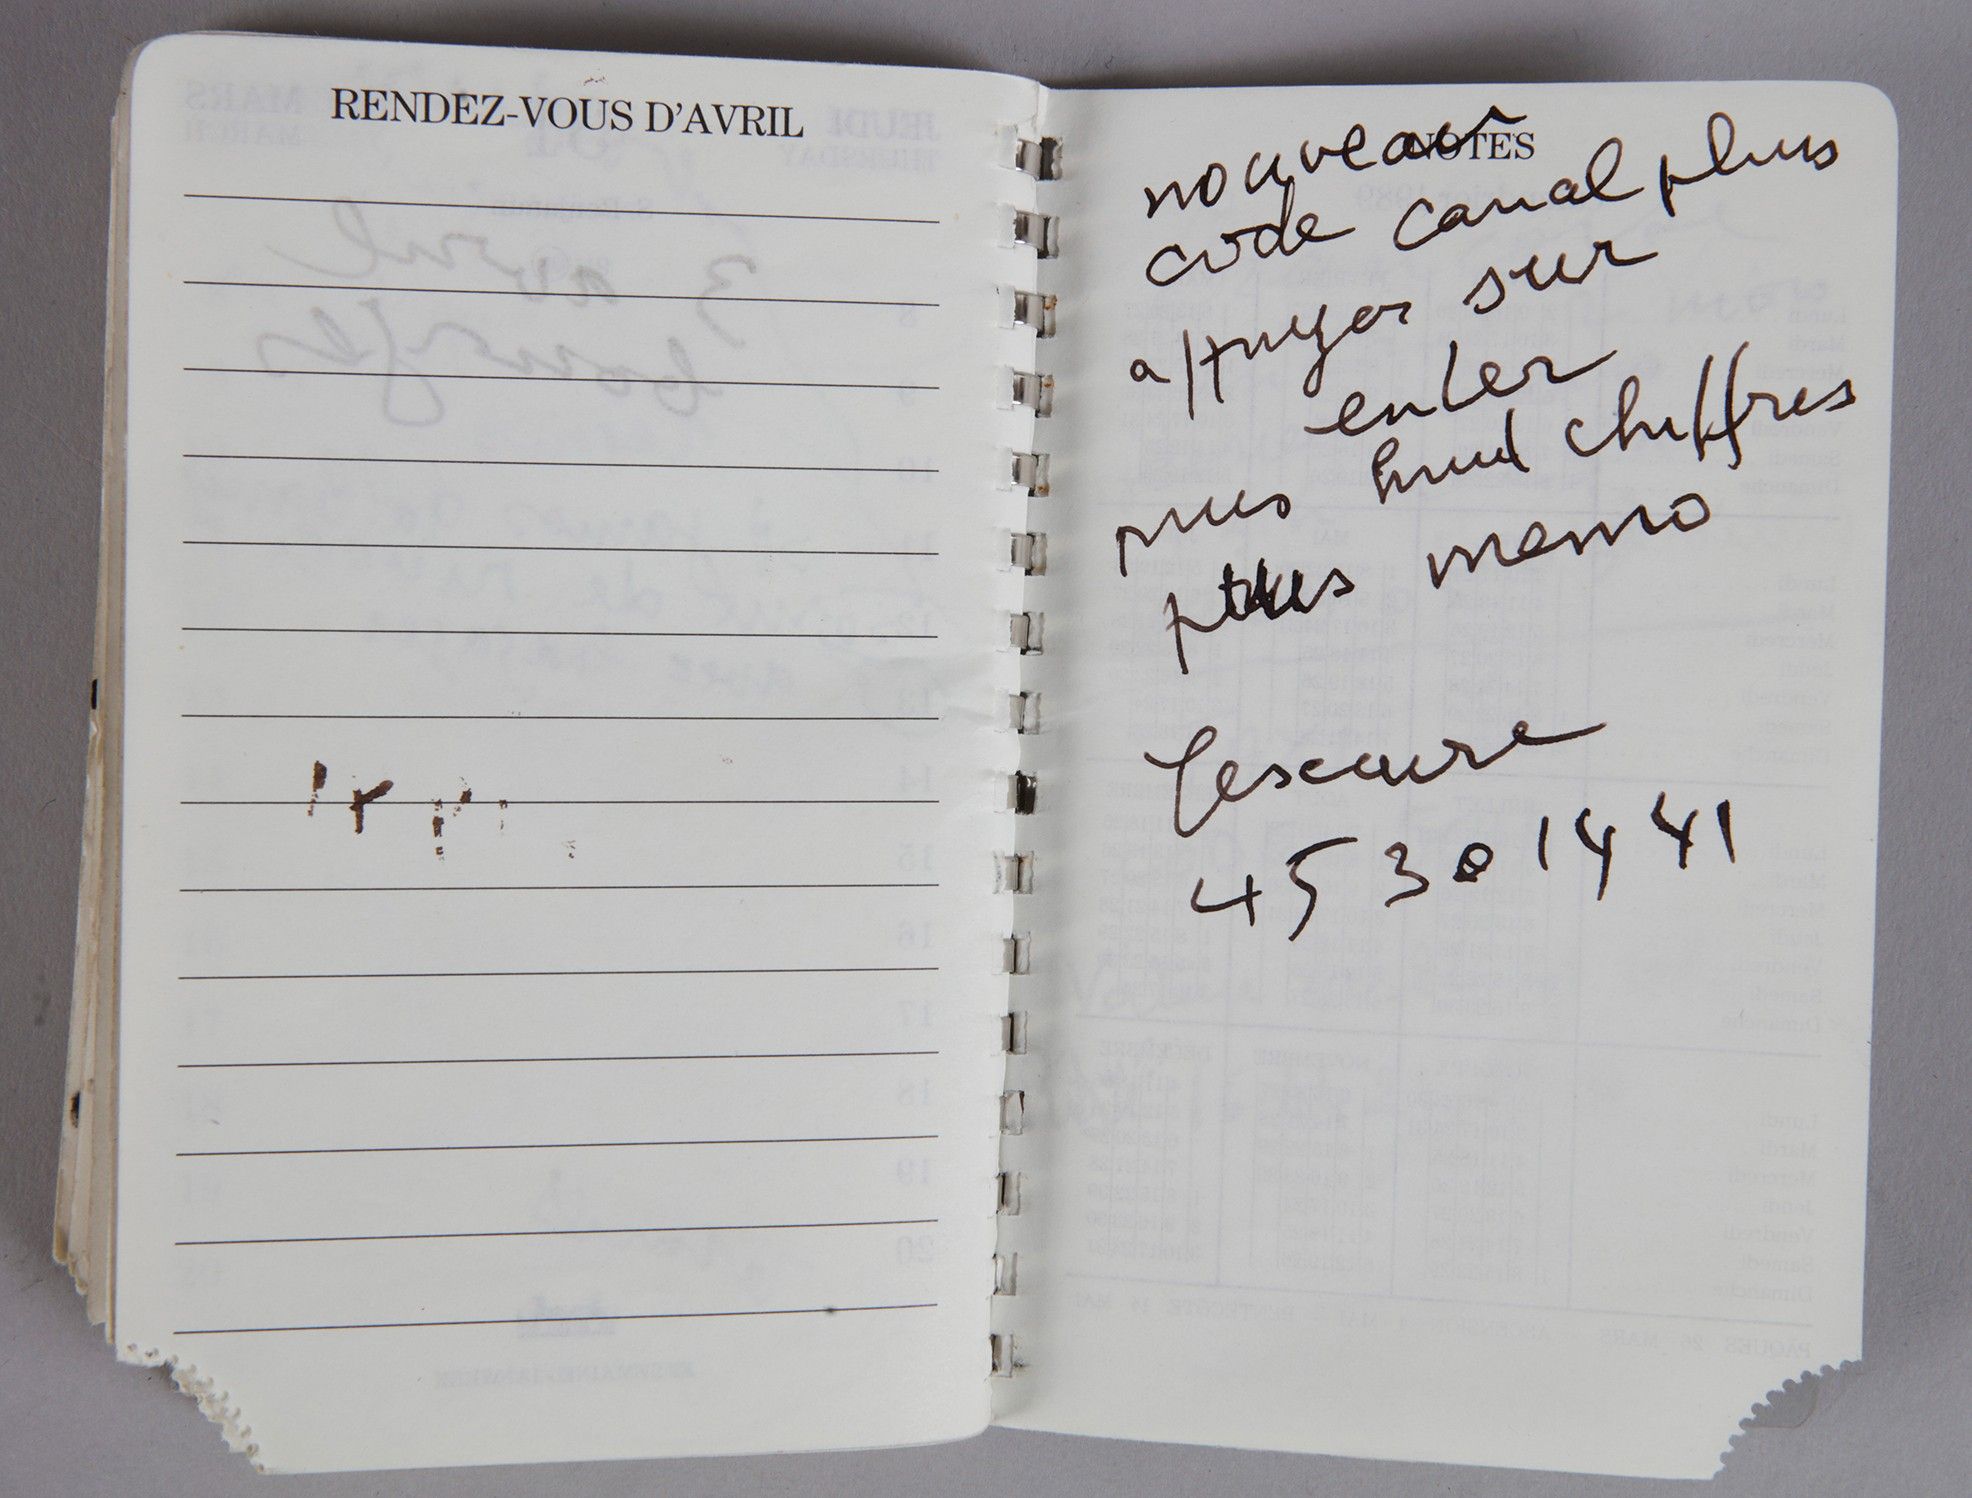 RENDEZ-VOUS D'AVRIL
NOTES
nouveau
code canal plus
appuyer sur
enter
puis huit chiffres
puis memo
Lescure
45 30 14 41